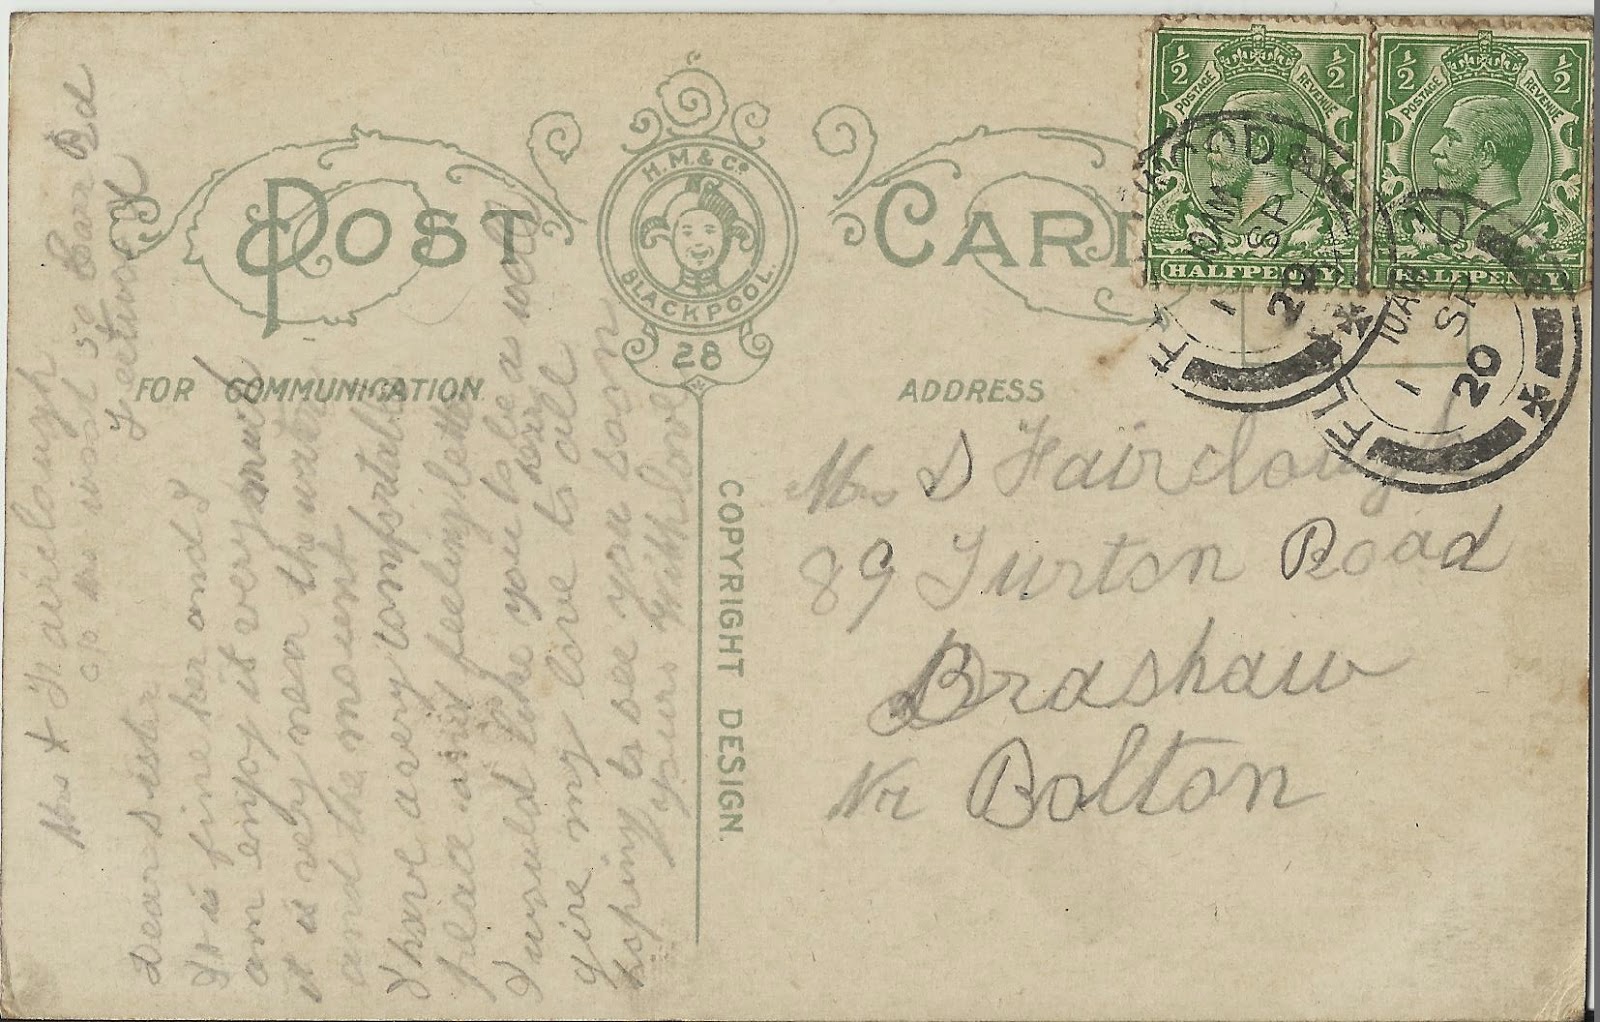 POST CARD
H.M. & Co.
BLACKPOOL.
28
FOR COMMUNICATION
ADDRESS
COPYRIGHT DESIGN.
½ ½
POSTAGE REVENUE
HALFPENNY
½ ½
POSTAGE REVENUE
HALFPENNY
10 AM
1 SP
20
FL
10 AM
1 SP
20
Mrs S Fairclough
89 Turton Road
Bradshaw
Nr Bolton
Mrs F Fairclough
c/o Mrs
Fleetwood
Dear sister
It is fine her and I
am enjoy it very much
it is very near the water
and the
I have a very comfortable
place and feeling better
I would like you to be a well
here
Give my love to all
hoping to see you soon
Yours With love